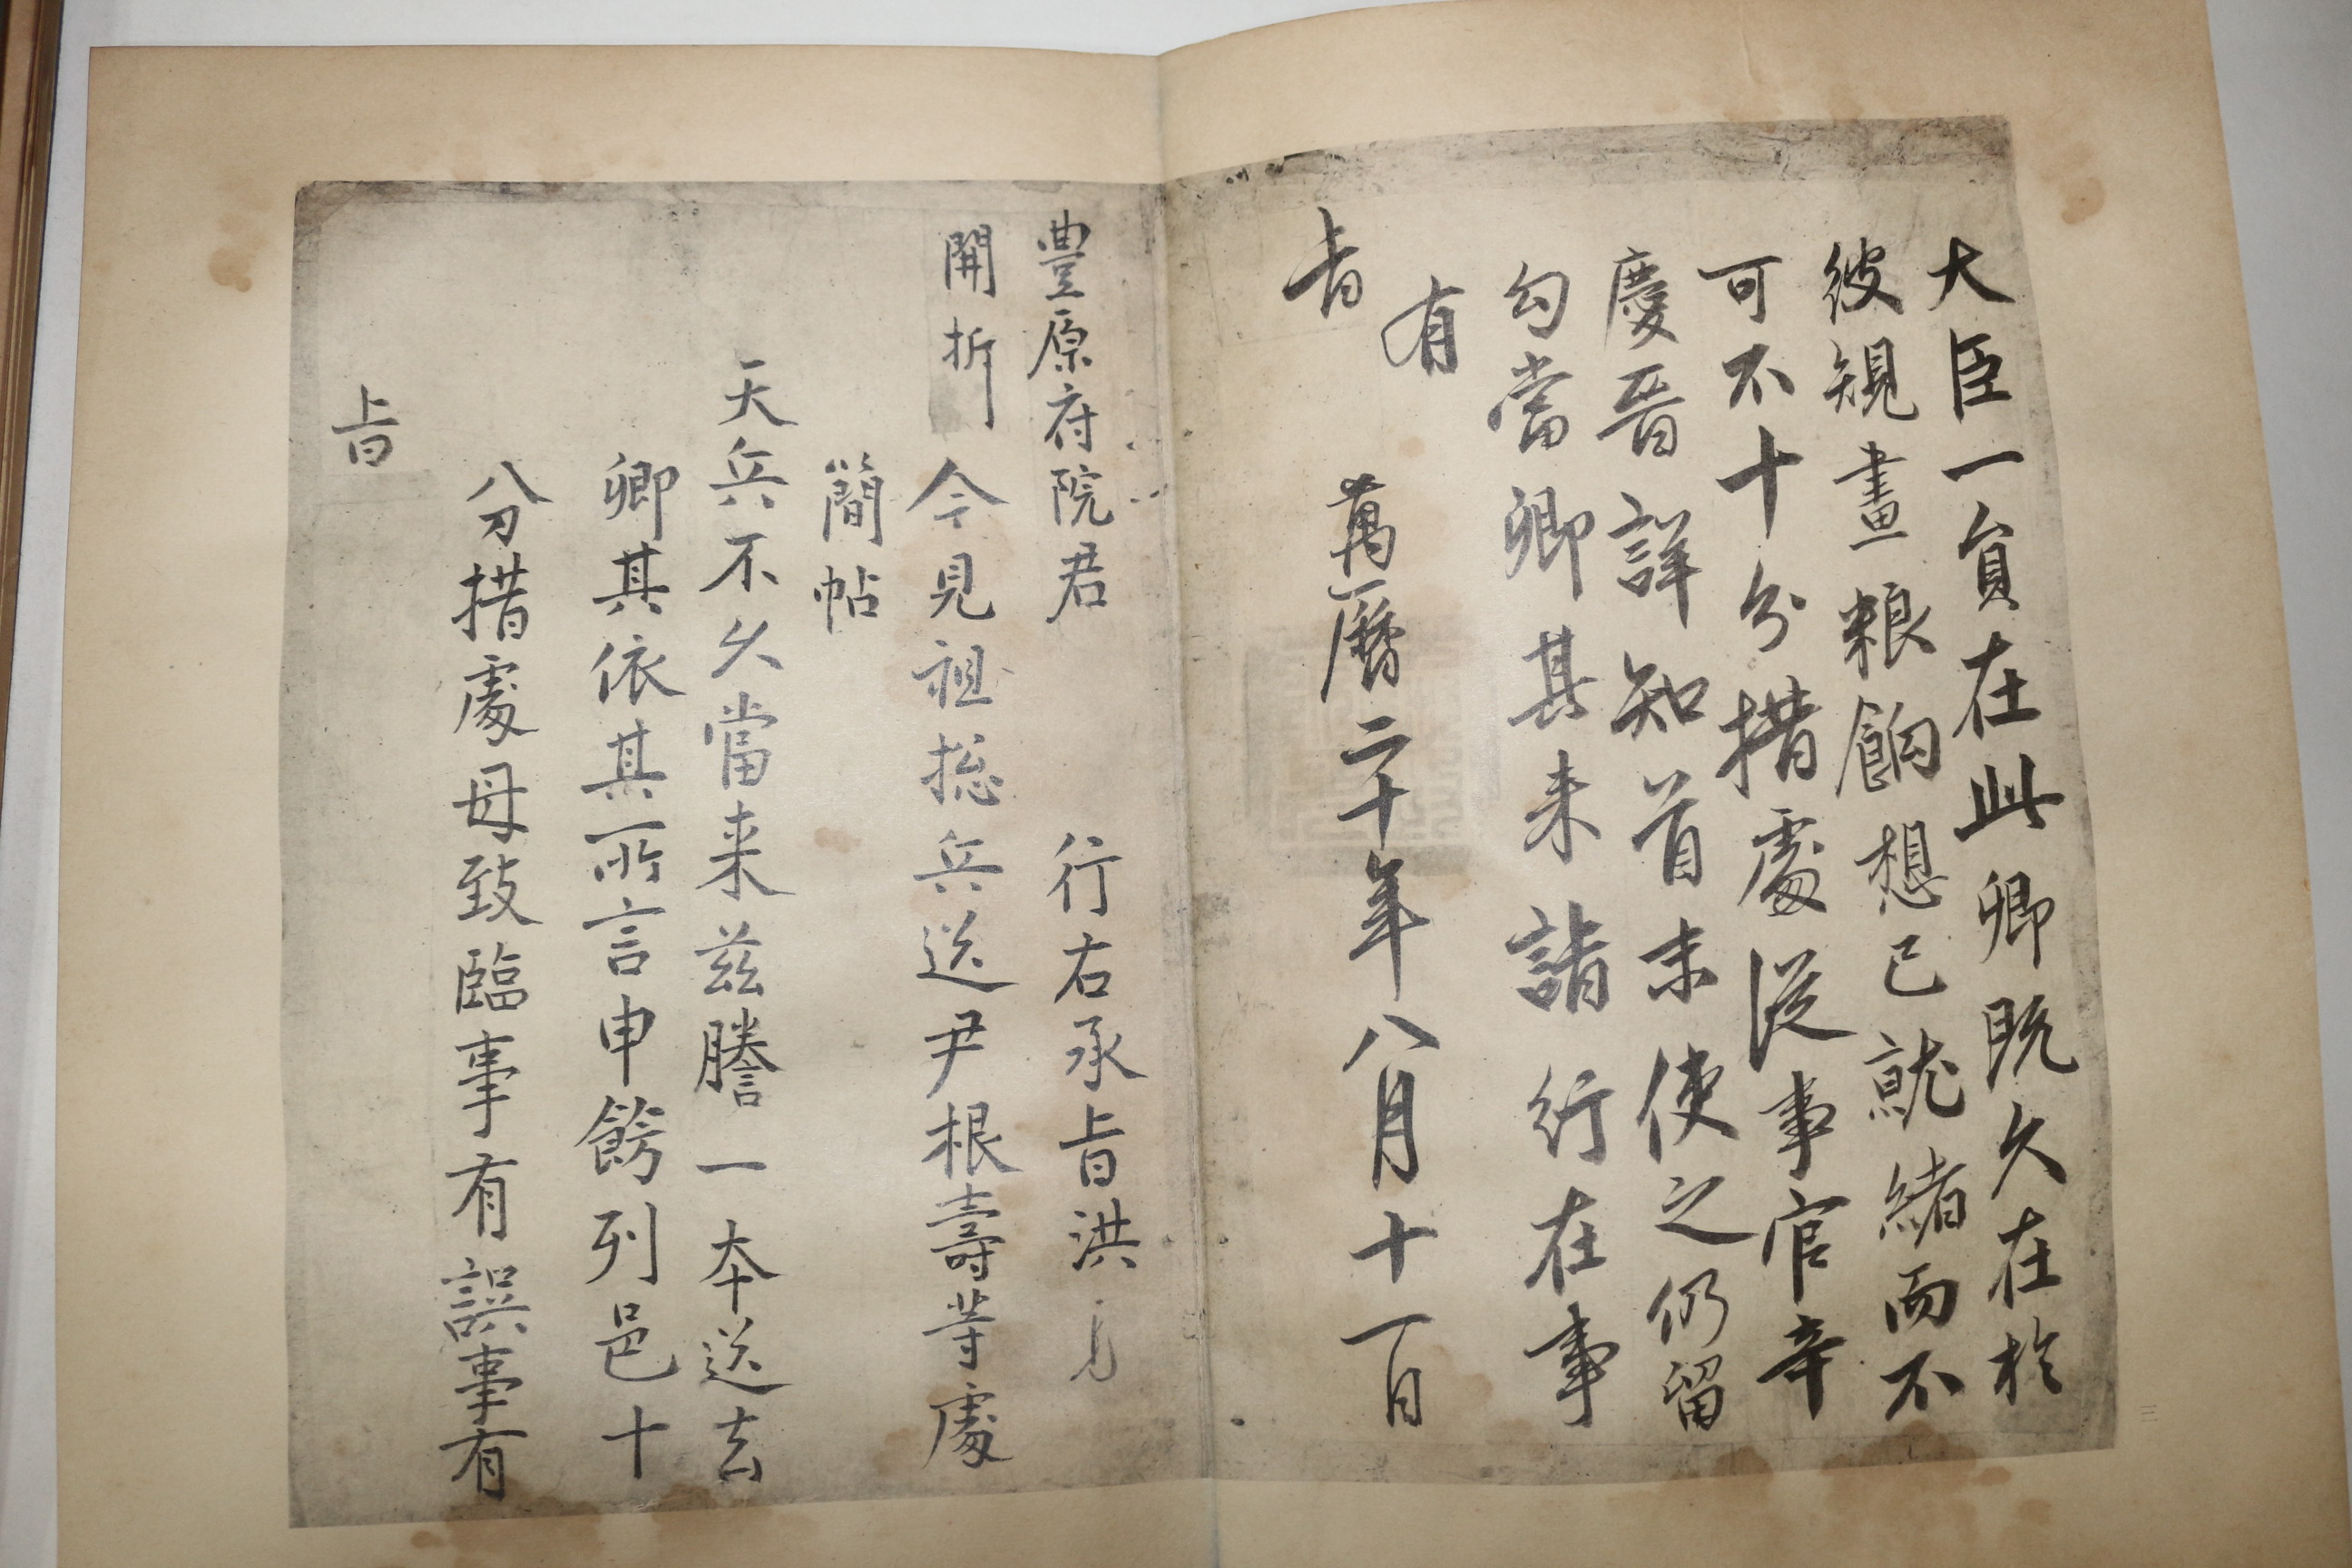 大臣一員在此卿既久在於
彼規畫粮餉想已就緒而不
可不十分措處從事官辛
慶晉詳知首末使之仍留
勾當卿其来詣行在事
有
旨
萬曆二十年八月十一日
豊原府院君 行右承旨洪
開折 今見祖摠兵送尹根壽等處
簡帖
天兵不久當来茲謄一本送去
卿其依其所言申飭列邑十
分措處毋致臨事有誤事有
旨
三